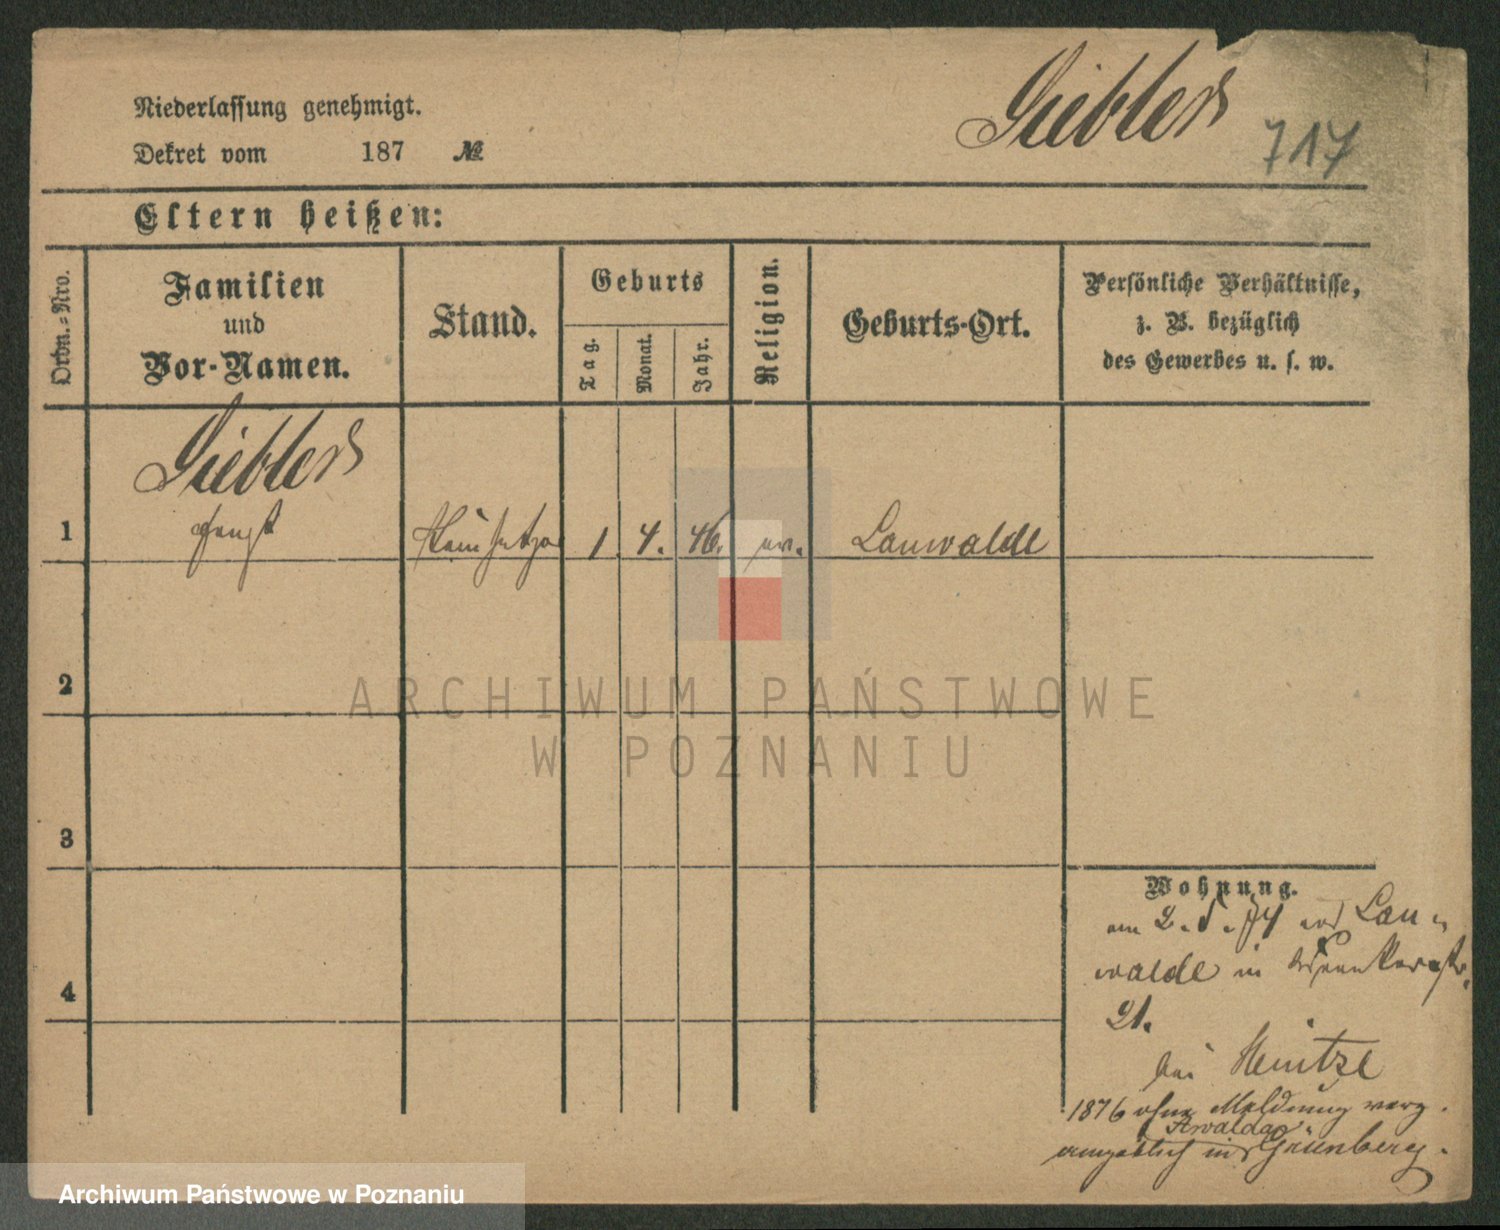 Niederlassung genehmigt.
Dekret vom 187 №
Gieblers
717
Eltern heißen:
Ordn.-Nro.
Familien
und
Vor-Namen.
Stand.
Geburts
Tag.
Monat.
Jahr.
Religion.
Geburts-Ort.
Persönliche Verhältnisse,
z. B. bezüglich
des Gewerbes u. s. w.
Gieblers
1 1. 4. 46. ev. Lauwalde
2
3
4
Wohnung.
am 2. 5. 74 aus Lau-
walde in
21.
bei Heintze
1876 ohne Meldung verz.
angeblich in Grünberg.
ARCHIWUM PAŃSTWOWE
W POZNANIU
Archiwum Państwowe w Poznaniu